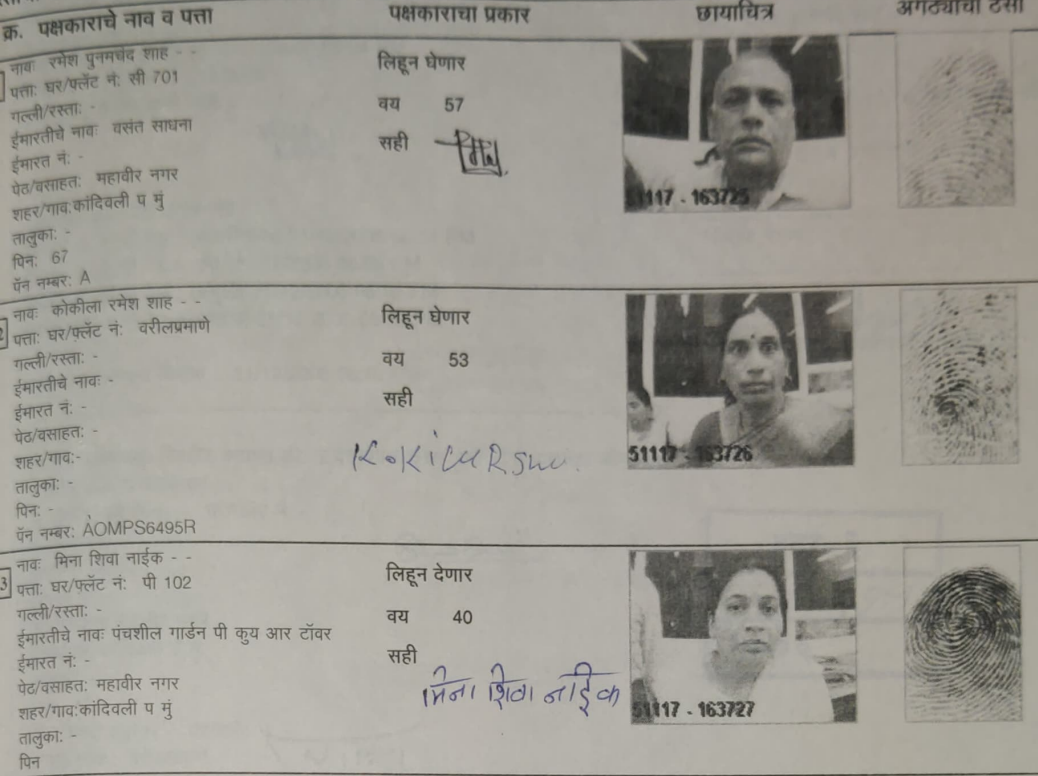 क्र. पक्षकाराचे नाव व पत्ता पक्षकाराचा प्रकार छायाचित्र अंगठ्याचा ठसा
नावः रमेश पुनमचंद शाह - -
पत्ता: घर/फ्लॅट नं: सी 701
गल्ली/रस्ता: -
ईमारतीचे नावः वसंत साधना
ईमारत नं: -
पेठ/वसाहत: महावीर नगर
शहर/गाव:कांदिवली प मुं
तालुका: -
पिन: 67
पॅन नम्बर: A
लिहून घेणार
वय 57
सही
51117 - 163725
2
नावः कोकीला रमेश शाह - -
पत्ता: घर/फ्लॅट नं: वरीलप्रमाणे
गल्ली/रस्ता: -
ईमारतीचे नावः -
ईमारत नं: -
पेठ/वसाहत: -
शहर/गाव:-
तालुका: -
पिन: -
पॅन नम्बर: AOMPS6495R
लिहून घेणार
वय 53
सही
51117 - 163726
3
नावः मिना शिवा नाईक - -
पत्ता: घर/फ्लॅट नं: पी 102
गल्ली/रस्ता: -
ईमारतीचे नावः पंचशील गार्डन पी कुय आर टॉवर
ईमारत नं: -
पेठ/वसाहत: महावीर नगर
शहर/गाव:कांदिवली प मुं
तालुका: -
पिन
लिहून देणार
वय 40
सही
मिना शिवा नाईक
51117 - 163727